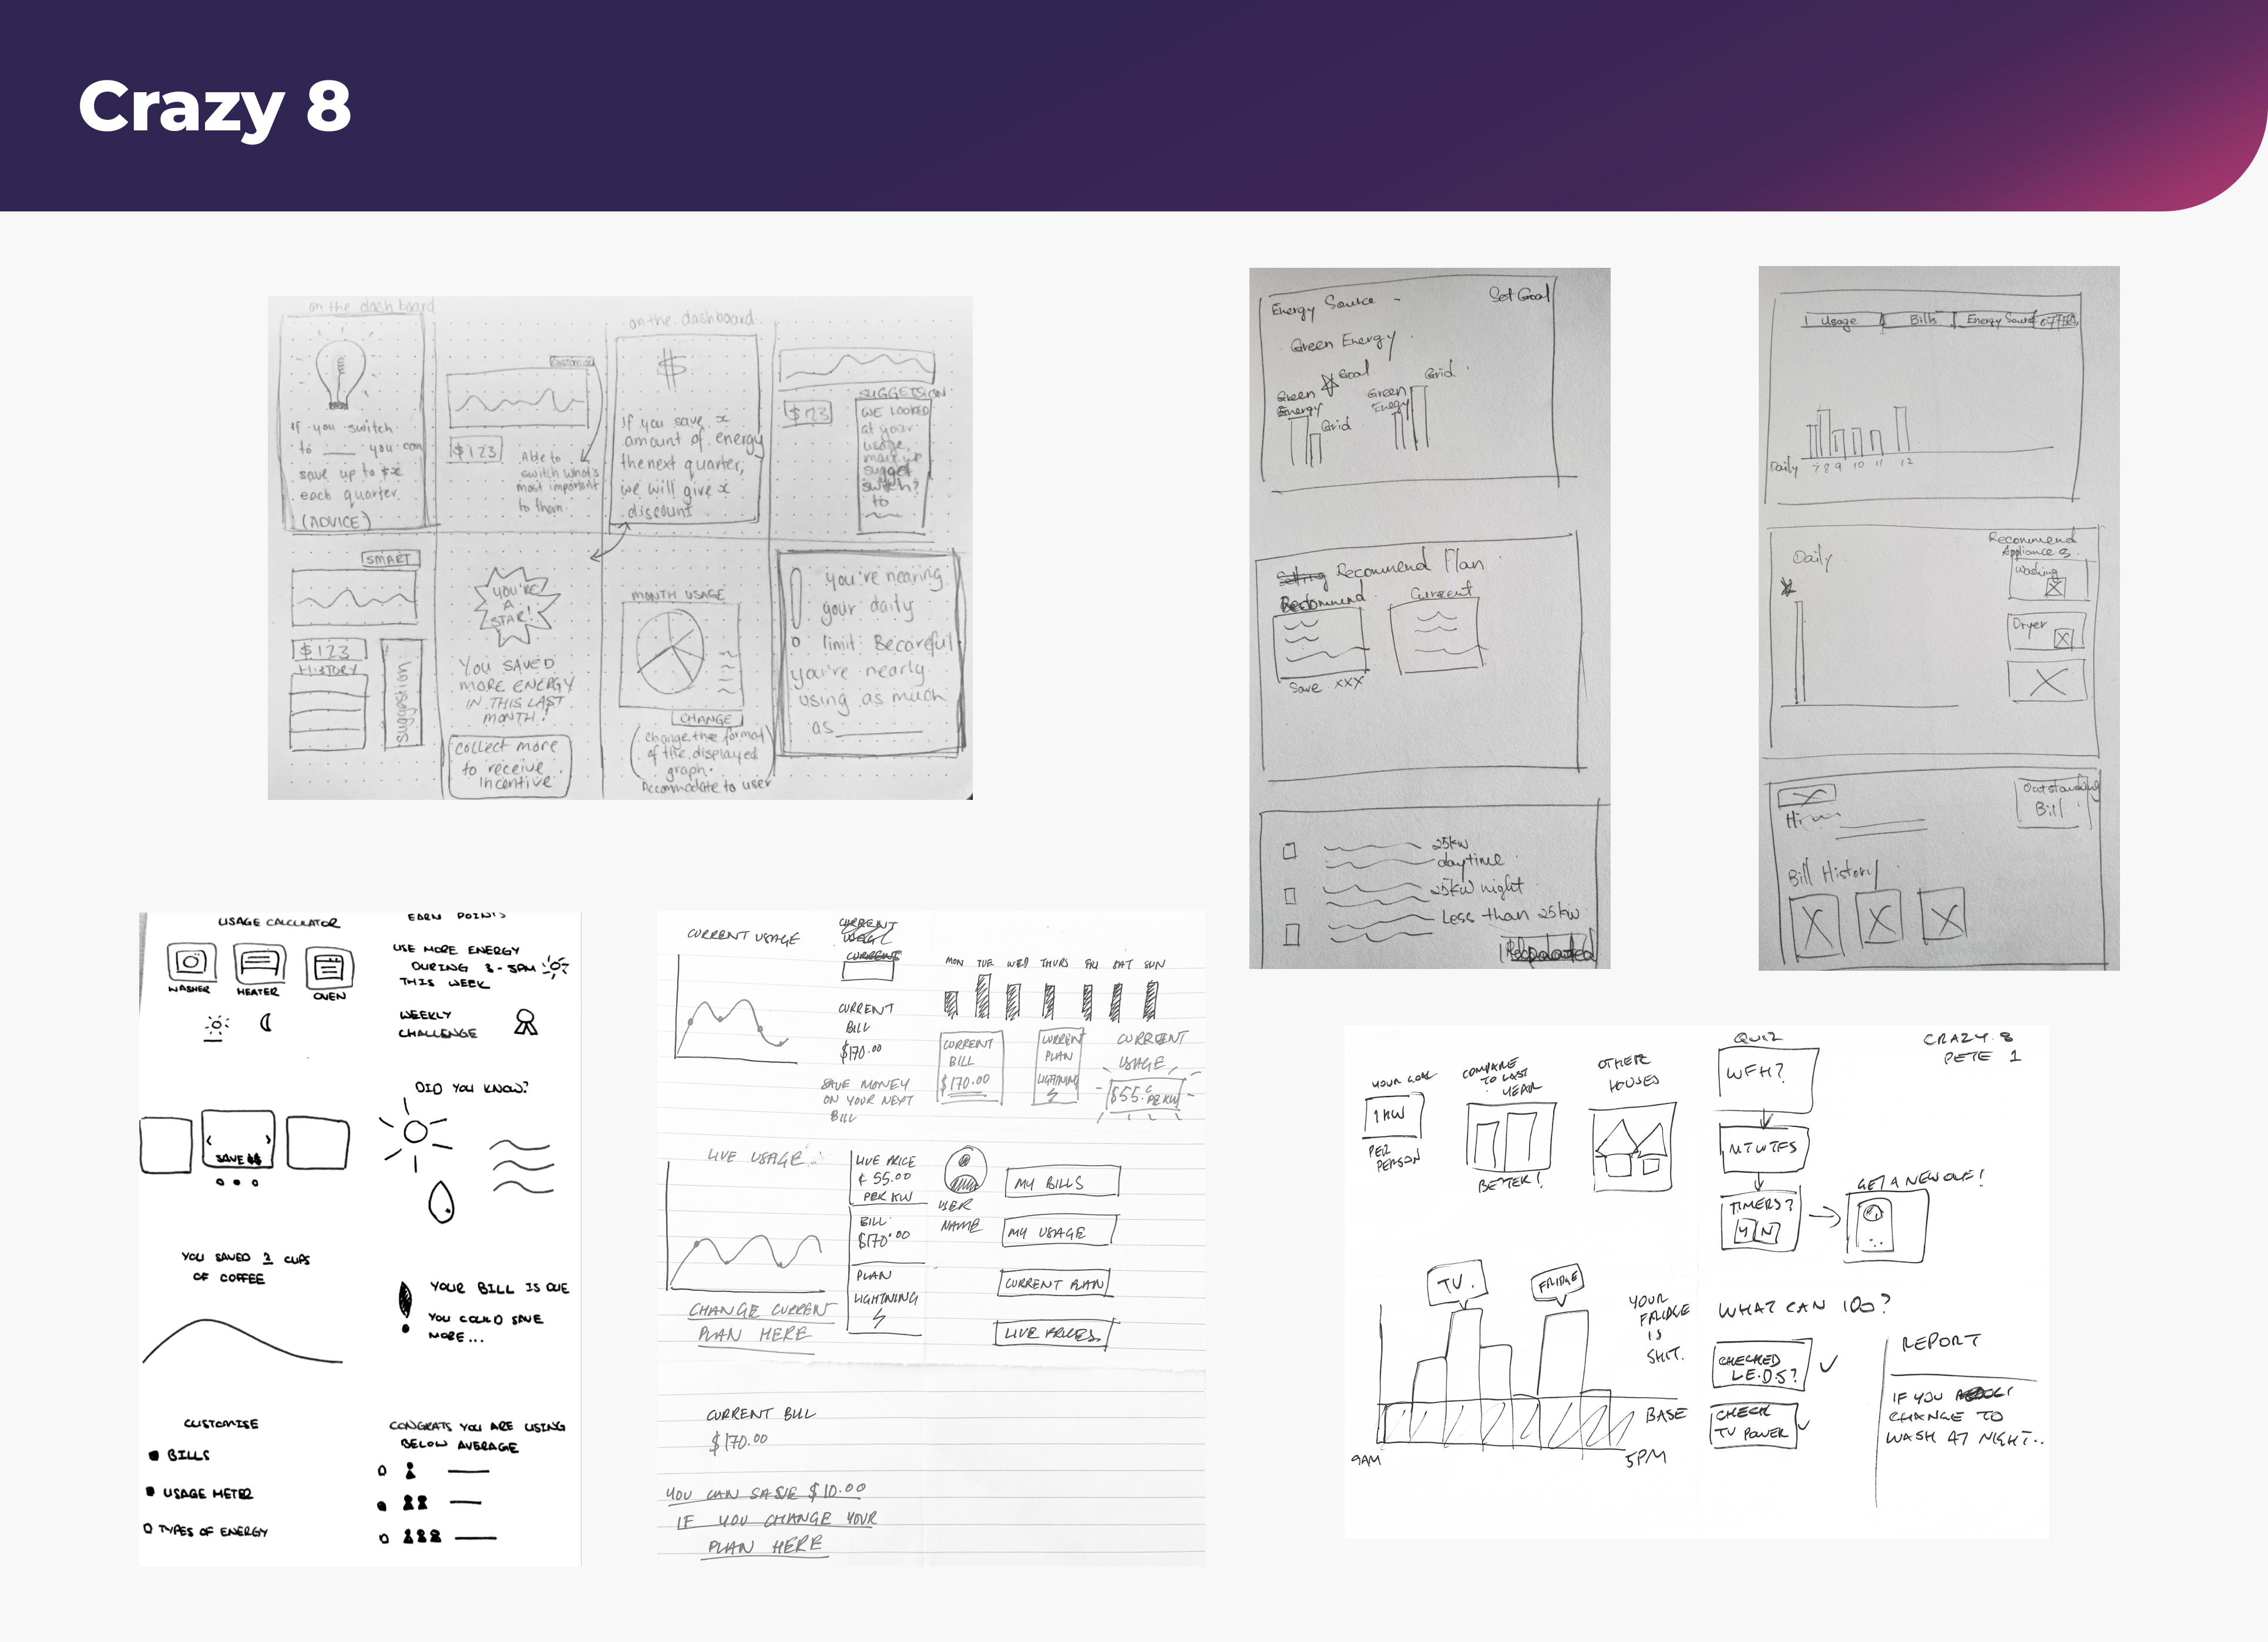 Crazy 8
on the dash board
If you switch
to ___ you can
save up to $x
each quarter
(ADVICE)
customise
$123
Able to
switch what's
most important
to them
on the dashboard
$
if you save x
amount of energy
the next quarter,
we will give x
discount
$123
SUGGETSION
WE LOOKED
at your
usage,
switch?
to
SMART
$123
HISTORY
suggestion
YOU'RE
A
STAR!
YOU SAVED
MORE ENERGY
IN THIS LAST
MONTH!
collect more
to receive
incentive
MONTH USAGE
CHANGE
change the format
of the displayed
graph.
Accommodate to user
you're nearing
your daily
limit. Becareful
you're nearly
using as much
as ______
Energy Source -
Set Goal
Green Energy
Goal
Green
Energy
Grid
Green
Energy
Grid
Recommend Plan
Recommend
Current
Save xxx
25kw
daytime
25kw night
Less than 25kw
Usage
Bills
Energy Source
OFFER
Daily
7 8 9 10 11 12
Daily
Recommend
Appliances
Washing
Dryer
Outstanding
Bill
Bill History
USAGE CALCULATOR
WASHER
HEATER
OVEN
SAVE $$
YOU SAVED 2 CUPS
OF COFFEE
CUSTOMISE
BILLS
USAGE METER
TYPES OF ENERGY
EARN POINTS
USE MORE ENERGY
DURING 3-5PM
THIS WEEK
WEEKLY
CHALLENGE
DID YOU KNOW?
YOUR BILL IS DUE
YOU COULD SAVE
MORE...
CONGRATS YOU ARE USING
BELOW AVERAGE
CURRENT USAGE
CURRENT
USAGE
CURRENT
CURRENT
BILL
$170.00
SAVE MONEY
ON YOUR NEXT
BILL
MON TUE WED THURS FRI SAT SUN
CURRENT
BILL
$170.00
CURRENT
PLAN
LIGHTNING
CURRENT
USAGE
$55.c
PER KW
LIVE USAGE
LIVE PRICE
¢ 55.00
PER KW
BILL
$170.00
PLAN
LIGHTNING
CHANGE CURRENT
PLAN HERE
USER
NAME
MY BILLS
MY USAGE
CURRENT PLAN
LIVE PRICES.
CURRENT BILL
$170.00
YOU CAN SASVE $10.00
IF YOU CHANGE YOUR
PLAN HERE
YOUR GOAL
1KW
PER
PERSON
COMPARE
TO LAST
YEAR
BETTER!
OTHER
HOUSES
QUIZ
WFH?
MTWTFS
TIMERS?
Y N
GET A NEW ONE!
CRAZY 8
PETE 1
TV.
FRIDGE
YOUR
FRIDGE
IS
SHIT.
BASE
9AM
5PM
WHAT CAN I DO?
CHECKED
L.E.D.S?
CHECK
TV POWER
REPORT
IF YOU
CHANGE TO
WASH AT NIGHT..